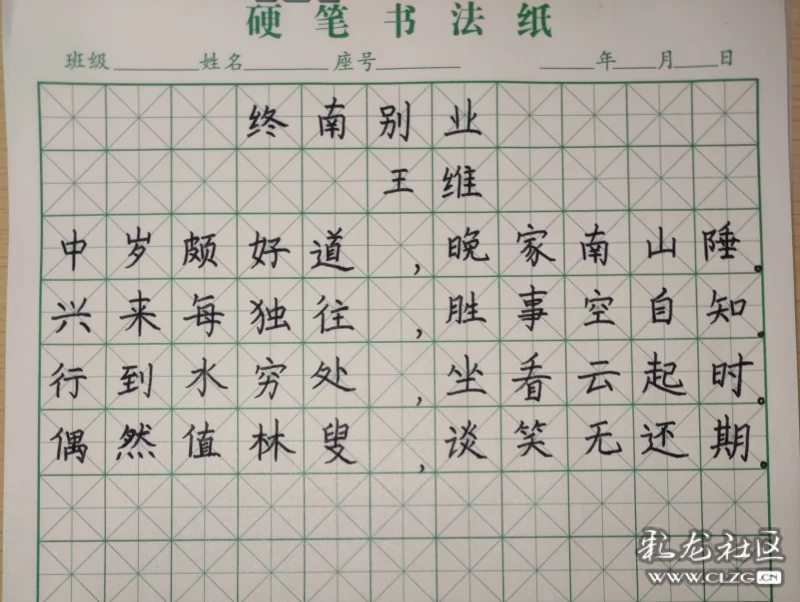 硬笔书法纸
班级 姓名 座号 年 月 日
终南别业
王维
中岁颇好道,晚家南山陲。
兴来每独往,胜事空自知。
行到水穷处,坐看云起时。
偶然值林叟,谈笑无还期。
彩龙社区
WWW.CLZG.CN